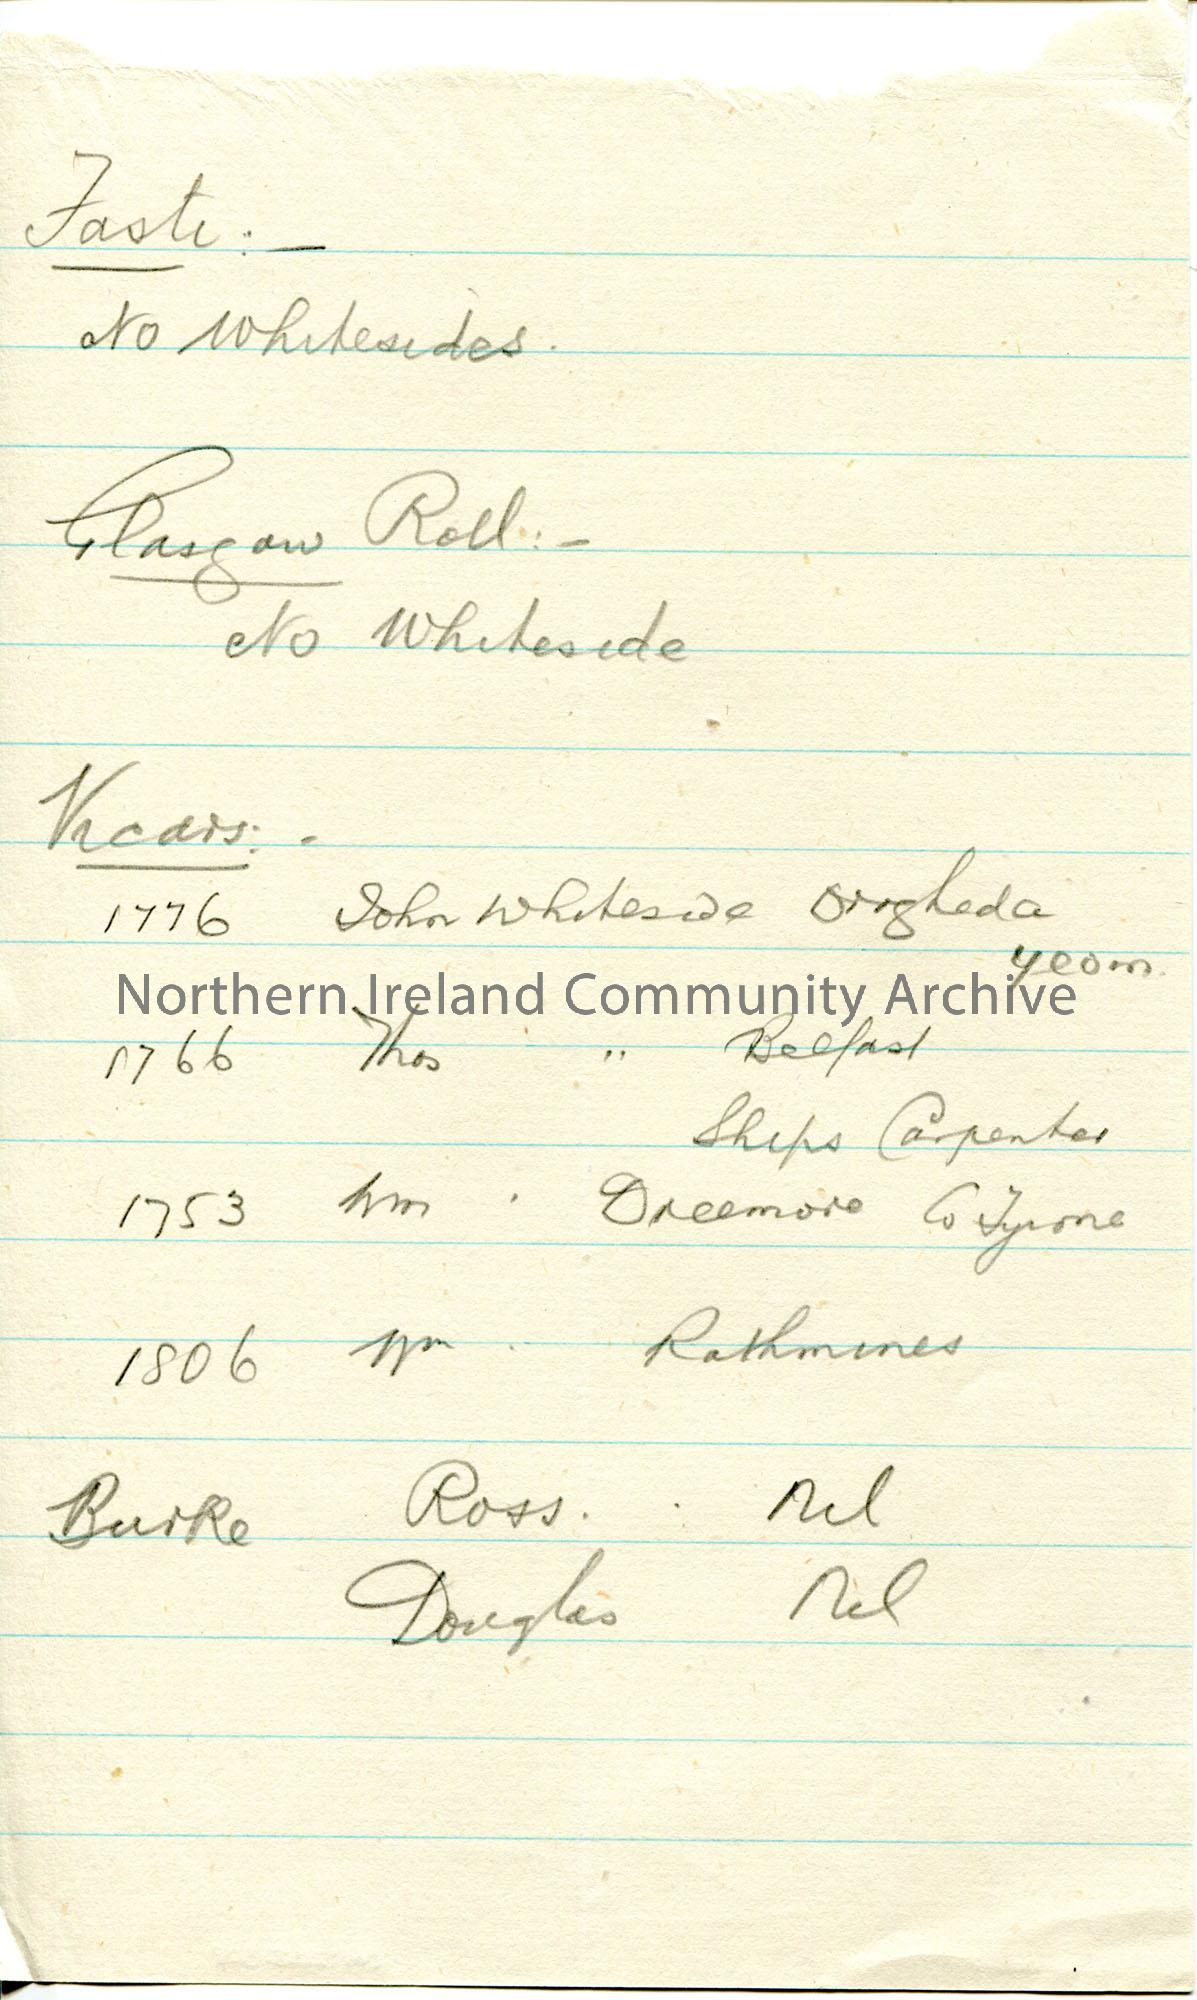 Fasti :-
No Whitesides.
Glasgow Roll :-
No Whiteside
Vicars :-
1776 John Whiteside Drogheda
yeom.
Northern Ireland Community Archive
1766 Thos " Belfast
Ships Carpenter
1753 Wm " Dreemore Co Tyrone
1806 Wm . Rathmines
Burke Ross. . Nil
Douglas Nil